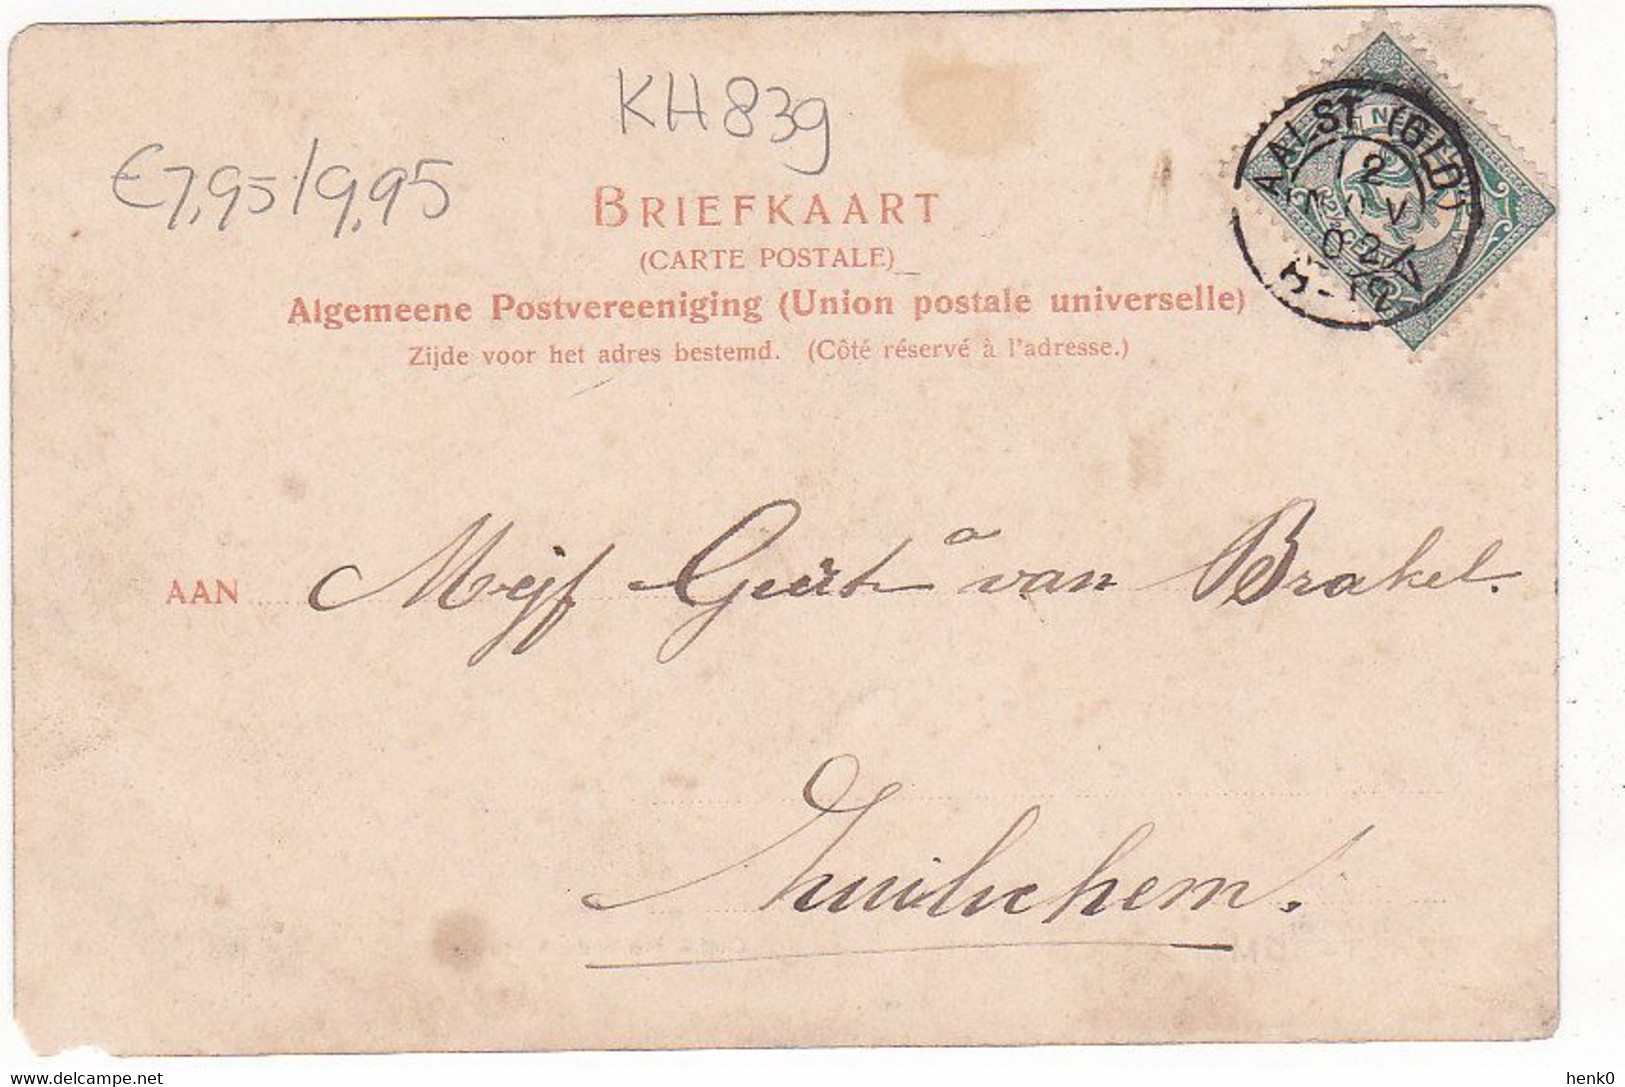 KH839
€7,95/9,95
BRIEFKAART
(CARTE POSTALE)
Algemeene Postvereeniging (Union postale universelle)
Zijde voor het adres bestemd. (Côté réservé à l'adresse.)
AALST (GLD)
2
NOV
02
AAN Mejf Geert^a van Brakel.
Zuilichem.
delcampe.net
henk0